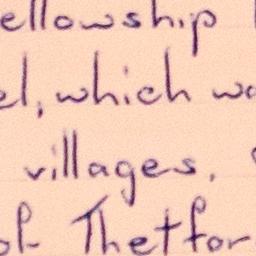 ellowship
el, which wa
villages.
of Thetfor